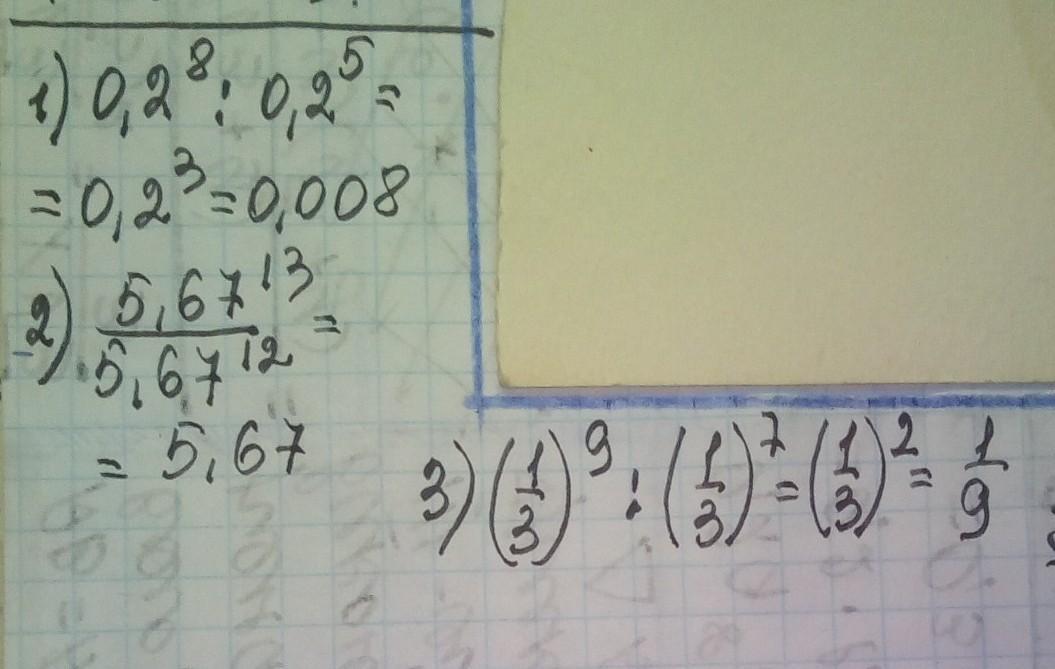 1) 0,2⁸ : 0,2⁵ =
= 0,2³ = 0,008
2) 5,67¹³ / 5,67¹² =
= 5,67
3) (1/3)⁹ : (1/3)⁷ = (1/3)² = 1/9